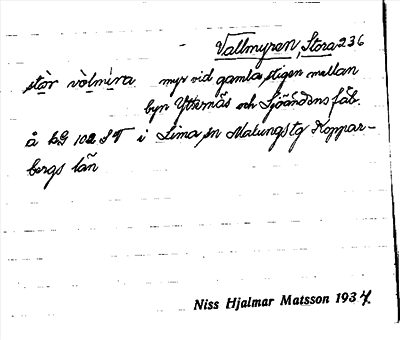 Vallmyren, Stora 236
stòr vàlmira myr vid gamla stigen mellan
byn Ytternäs och Sjöändens fäb.
å EG 102 ST i Lima sn Malungs tg Koppar-
bergs län
Niss Hjalmar Matsson 1937.